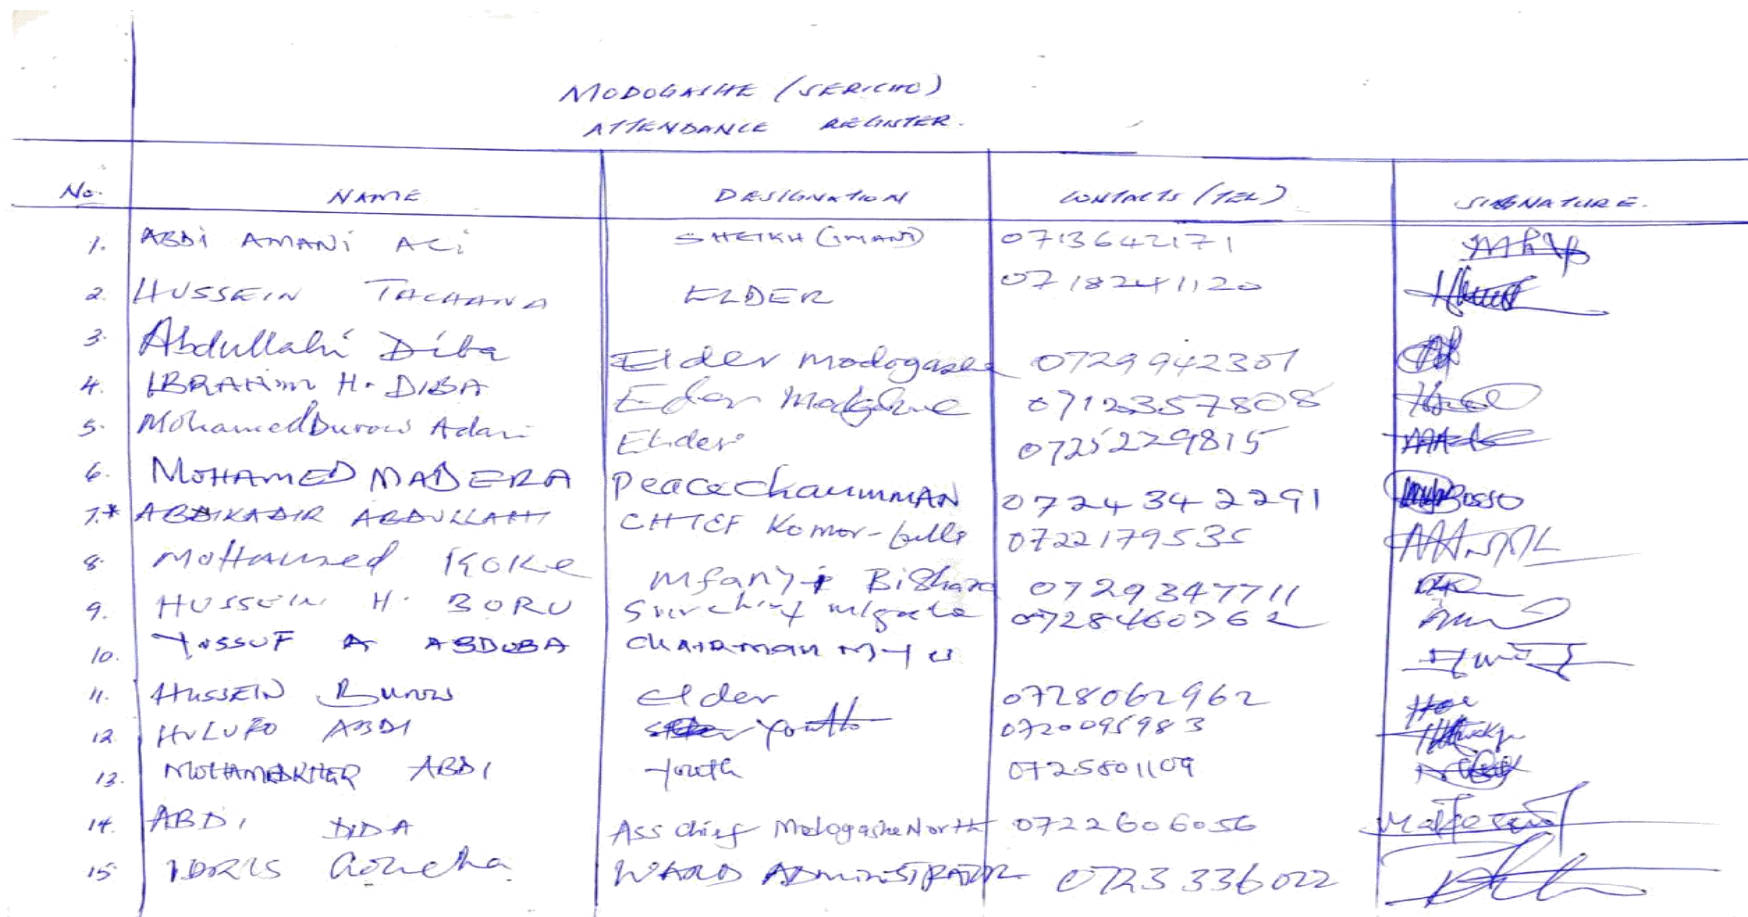 MODOGASHE (SERICHO)
ATTENDANCE REGISTER.
No. NAME DESIGNATION CONTACTS (TEL) SIGNATURE.
1. ABDI AMANI ALI SHEIKH (IMAM) 0713642171
2. HUSSEIN TACHANA ELDER 0718241120
3. Abdullahi Diba Elder Modogashe 0729942301
4. IBRAHIM H. DIBA 0712357808
5. Mohamed Burow Adan Elder 0725229815
6. MOHAMED MADERA Peace chairmMAN 0724342291
7.* ABDIKADIR ABDULLAHI CHIEF Komor-bulla 0722179535
8. Mohamed Koke Mfanyi Bishara 0729347711
9. HUSSEIN H. BORU 0728460762
10. YUSSUF A ABDUBA CHAIRMAN
11. HUSSEIN Burow elder 0728062962
12. HULUFO ABDI youth 0720095983
13. ABDI youth 0725801109
14. ABDI DIDA Ass chief Modogashe North 0722606056
15 IDRIS Golicha WARD ADMINISTRATOR 0723336022